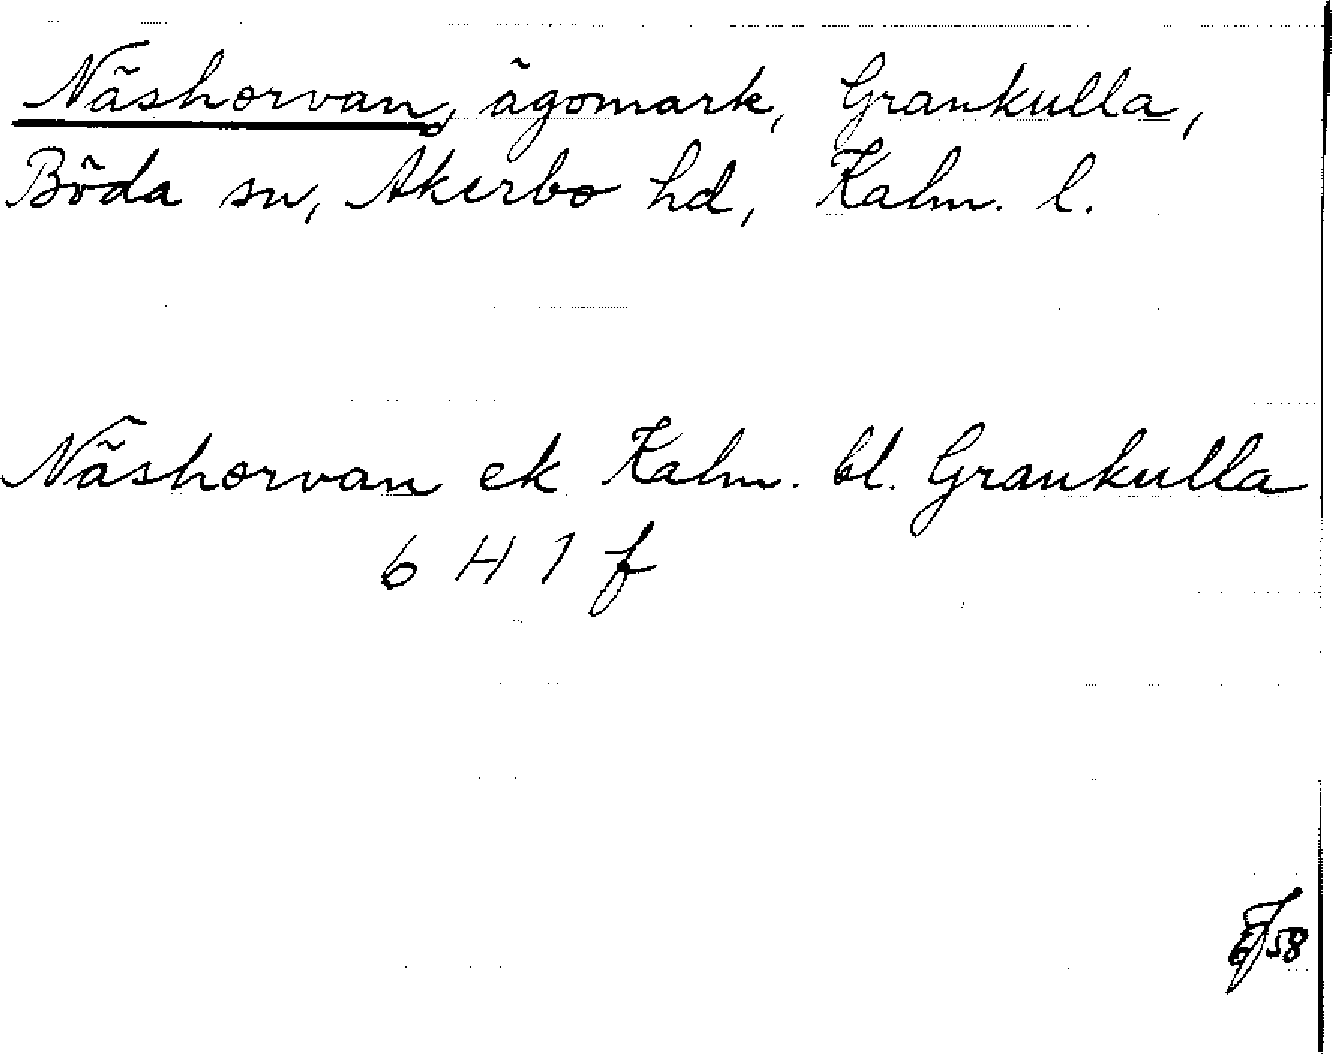 Näshorvan, ägomark, Grankulla,
Böda sn, Åkerbo hd, Kalm. l.
Näshorvan ek Kalm. bl. Grankulla
6 H 1 f
58